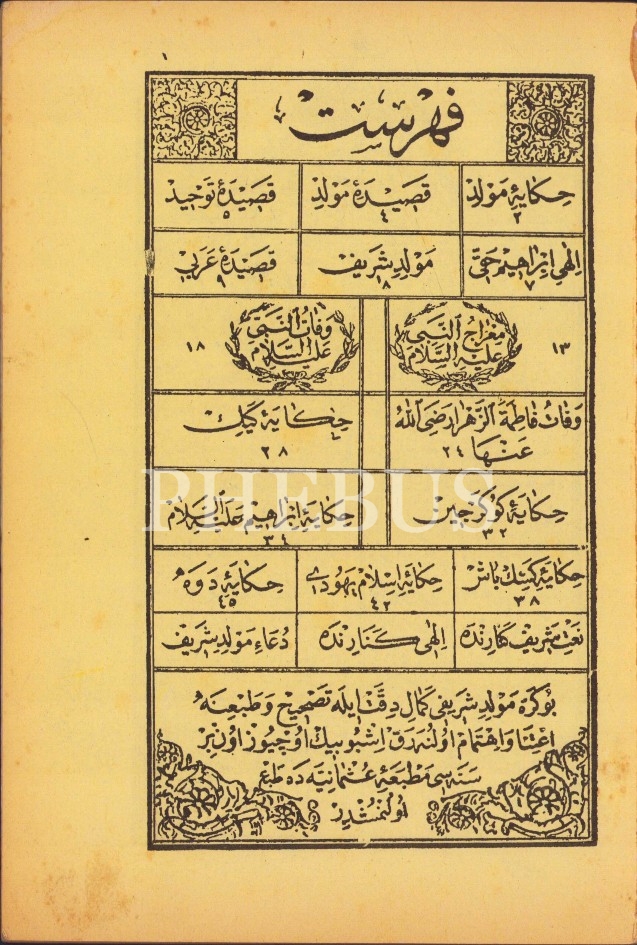 ١
فهرست
حكايهٔ مولد
٢
قصيدهٔ مولد
٤
قصيدهٔ توحيد
٥
الهی ابراهيم حقی
٧
مولد شريف
٨
قصيدهٔ عربی
٩
معراج النبی
عليه السلام
١٣
وفات النبی
عليه السلام
١٨
وفات فاطمة الزهرا رضی الله
عنها ٢٤
حكايهٔ كيك
٢٨
حكايهٔ كوكرجين
٣٢
حكايهٔ ابراهيم عليه السلام
٣٤
حكايهٔ كسك باش
٣٨
حكايهٔ اسلام يهودی
٤٢
حكايهٔ دوه
٤٥
نعت شريف كنارنده
الهی كنارنده
دعاء مولد شريف
بوكره مولد شريفی كمال دقت ايله تصحيح و طبعنه
اعتنا و اهتمام اولنه رق اشبو بيك اوچيوز اون بر
سنه سی مطبعهٔ عثمانيه ده طبع
اولنمشدر
PHEBUS